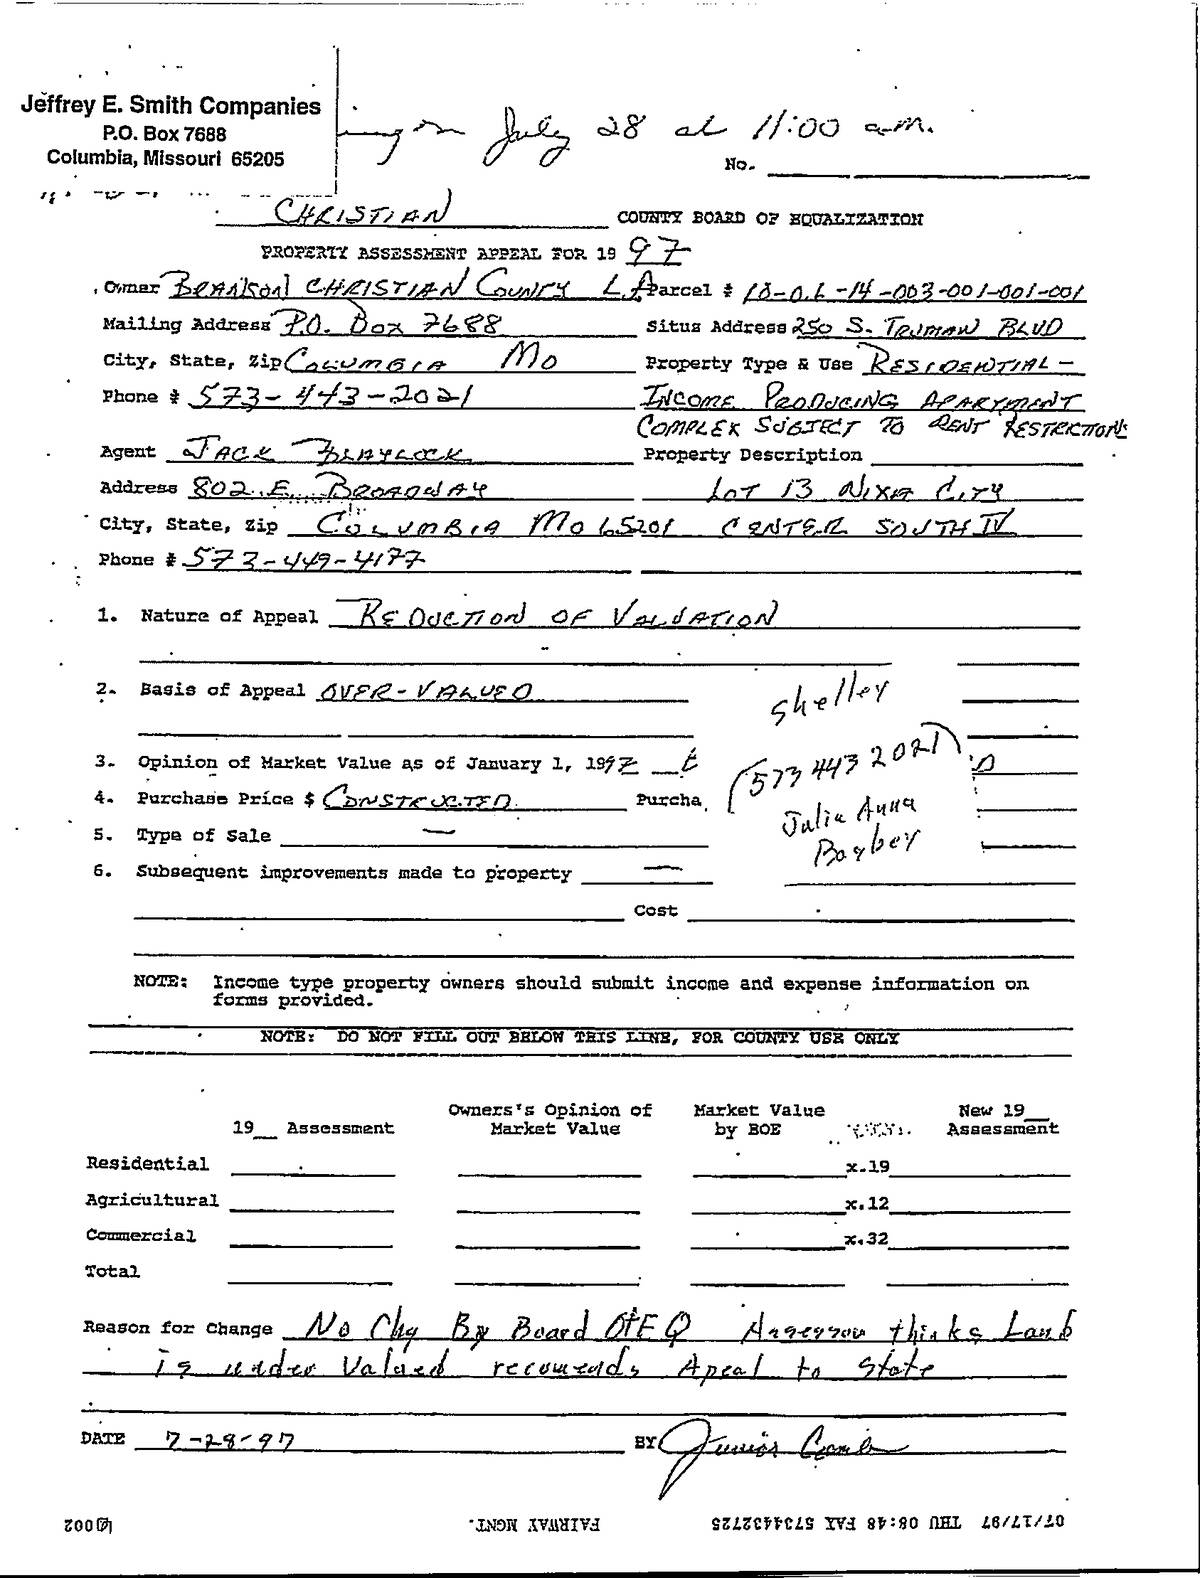 Jeffrey E. Smith Companies
P.O. Box 7688
Columbia, Missouri 65205
July 28 at 11:00 a.m.
No.
CHRISTIAN COUNTY BOARD OF EQUALIZATION
PROPERTY ASSESSMENT APPEAL FOR 19 97
Owner BRANSON CHRISTIAN COUNTY L.P. Parcel # 10-0.6-14-003-001-001-001
Mailing Address P.O. Box 7688 Situs Address 250 S. TRUMAN BLVD
City, State, Zip COLUMBIA MO Property Type & Use RESIDENTIAL -
Phone # 573-443-2021 INCOME PRODUCING APARTMENT
COMPLEX SUBJECT TO RENT RESTRICTIONS
Agent JACK BLAYLOCK Property Description
Address 802 E. BROADWAY LOT 13 NIXA CITY
City, State, Zip COLUMBIA MO 65201 CENTER SOUTH IV
Phone # 573-449-4177
1. Nature of Appeal REDUCTION OF VALUATION
2. Basis of Appeal OVER-VALUED
Shelley
3. Opinion of Market Value as of January 1, 1997
(573 443 2021)
4. Purchase Price $ CONSTRUCTED Purcha
Julia Anna
5. Type of Sale —
Barbey
6. Subsequent improvements made to property —
Cost
NOTE: Income type property owners should submit income and expense information on
forms provided.
NOTE: DO NOT FILL OUT BELOW THIS LINE, FOR COUNTY USE ONLY
Owners's Opinion of Market Value New 19__
19__ Assessment Market Value by BOE Assessment
Residential x.19
Agricultural x.12
Commercial x.32
Total
Reason for Change No Chg By Board Of EQ Assessor thinks Land
is under Valued recomends Apeal to State
DATE 7-28-97 BY Junior Comb
07/17/97 THU 08:48 FAX 5734432725 FAIRWAY MGNT. 002